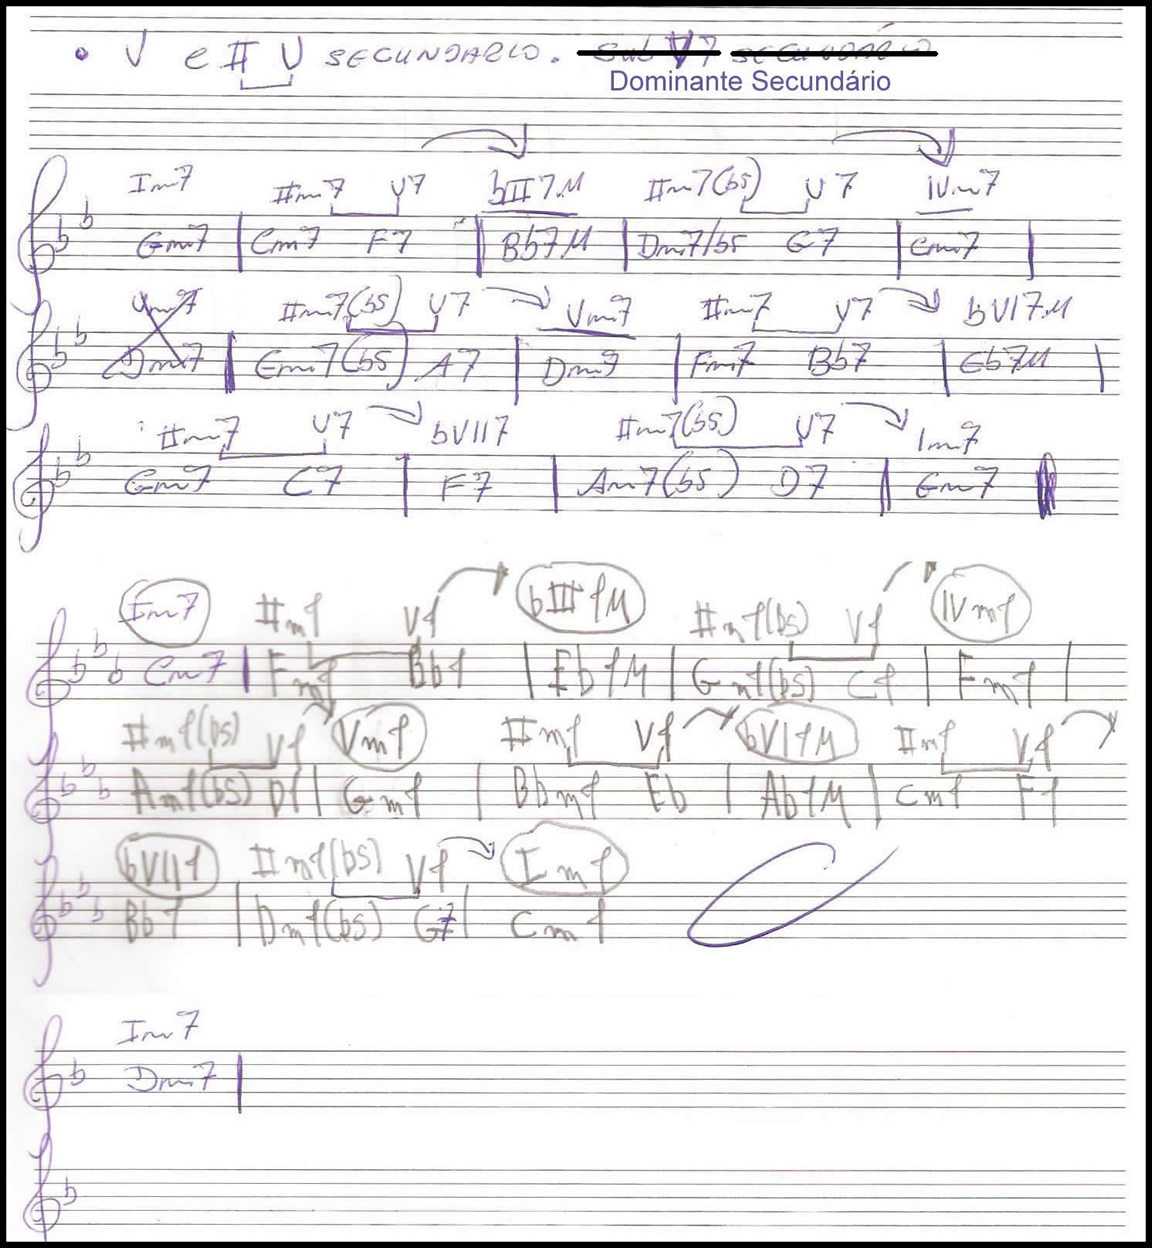 • V e II V SECUNDARIO. Sub V7 SECUNDÁRIO
Dominante Secundário
Im7 IIm7 V7 bIII7M IIm7(b5) V7 IVm7
Gm7 Cm7 F7 Bb7M Dm7/b5 G7 Cm7
Vm7 IIm7(b5) V7 Vm7 IIm7 V7 bVI7M
Dm7 Em7(b5) A7 Dm7 Fm7 Bb7 Eb7M
IIm7 V7 bVII7 IIm7(b5) V7 Im7
Gm7 C7 F7 Am7(b5) D7 Gm7
Im7 IIm7 V7 bIII7M IIm7(b5) V7 IVm7
Cm7 Fm7 Bb7 Eb7M Gm7(b5) C7 Fm7
IIm7(b5) V7 Vm7 IIm7 V7 bVI7M IIm7 V7
Am7(b5) D7 Gm7 Bbm7 Eb Ab7M Cm7 F7
bVII7 IIm7(b5) V7 Im7
Bb7 Dm7(b5) G7 Cm7
Im7
Dm7